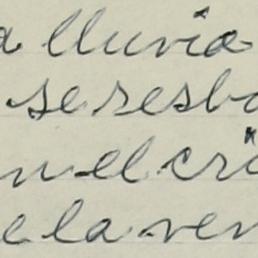 a lluvia
se resba
n el cri
e la ven